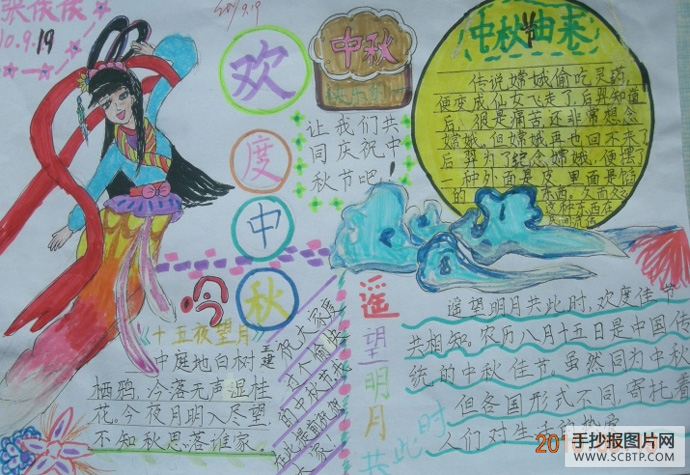 张俊俊
10.9.19
2010.9.19
欢
度
中
秋
中秋
让我们共
同庆祝中
秋节吧！
中秋由来
传说嫦娥偷吃灵药，
便变成仙女飞走了，后羿知道
后，很是痛苦还非常想念
嫦娥。但嫦娥再也回不来了
后羿为了纪念嫦娥，便摆了
一种外面是皮，里面是馅
的
东西，久而久之
这种东西在
吟
《十五夜望月》
王建
中庭地白树
栖鸦，今落无声湿桂
花。今夜月明人尽望，
不知秋思落谁家。
祝大家度
过个愉快
的中秋节
在此提前祝福
大家！
遥
望
明
月
共
此
时
遥望明月共此时，欢度佳节
共相知。农历八月十五日是中国传
统的中秋佳节。虽然同为中秋
但各国形式不同，寄托着
人们对生活的热爱
手抄报图片网
WWW.SCBTP.COM